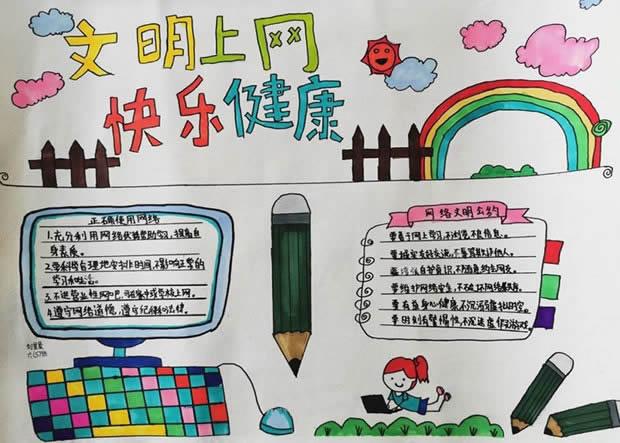 文明上网
快乐健康
正确使用网络
1.充分利用网络优势帮助学习,提高自
身素质。
2.学科学合理地安排时间,不影响正常的
学习和生活。
3.不进营业性网吧,可在家中或学校上网。
4.遵守网络道德,遵守纪律和法律。
网络文明公约
要善于网上学习,不浏览不良信息。
要诚实友好交流,不辱骂欺诈他人。
要增强自护意识,不随意约会网友。
要维护网络安全,不破坏网络秩序。
要有益身心健康,不沉溺虚拟时空。
要时刻